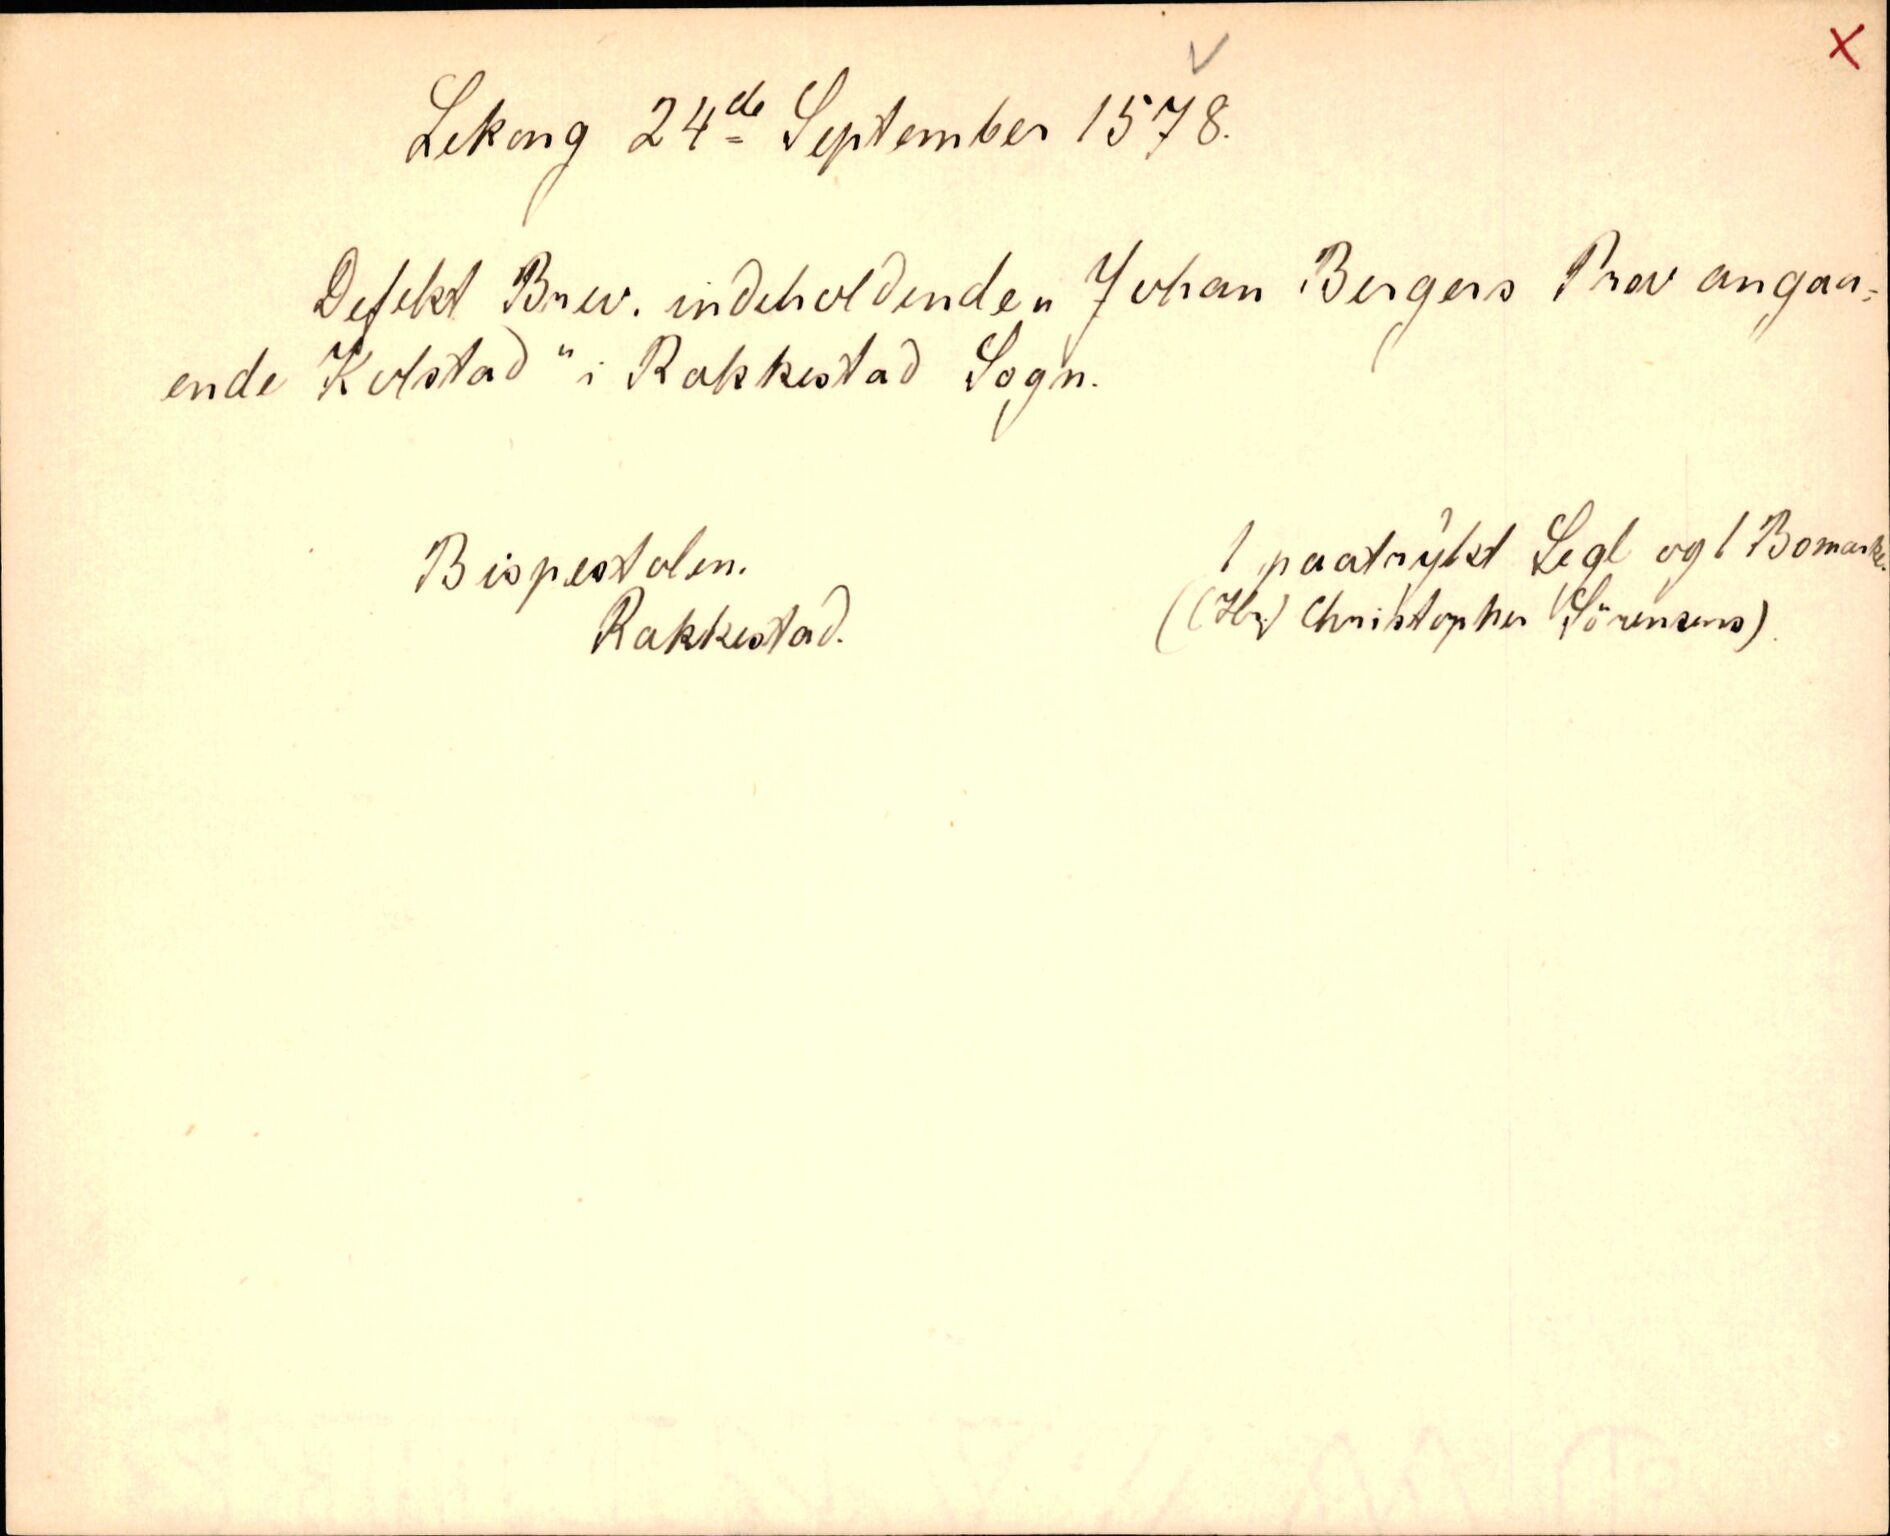 Lekang 24de September 1578.
Defekt Brev. indeholdende „Johan Bergers Prov angaa=
ende Kolstad“ i Rakkestad Sogn.
Bispestolen.
Rakkestad.
1 paatrÿkt Segl og 1 Bomærke.
((Hr) Christopher Sörensens).